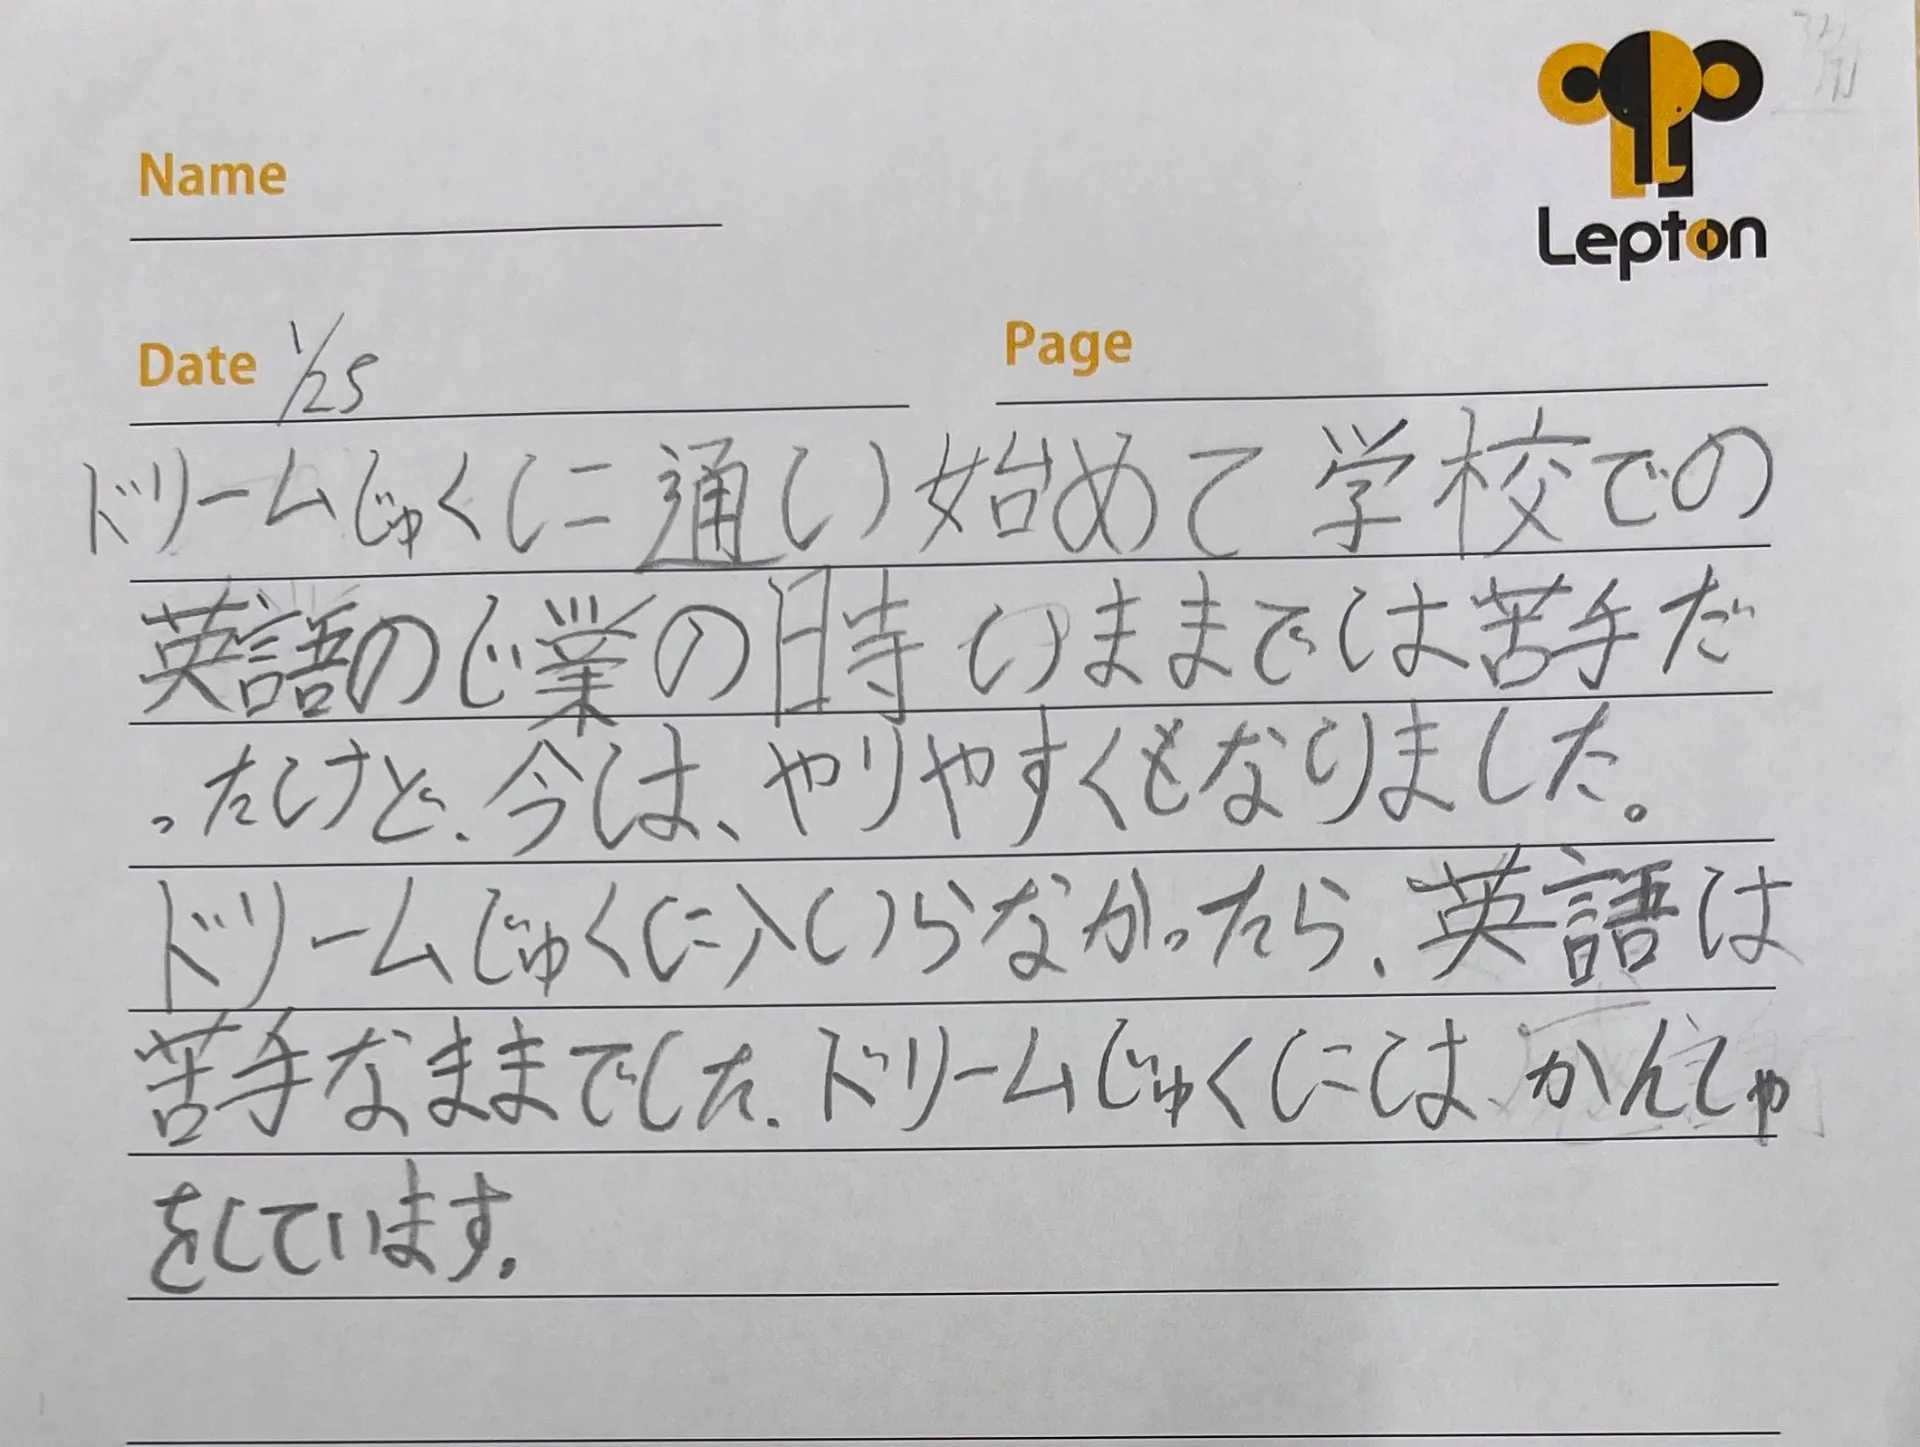 Lepton
Name
Date 1/25
Page
ドリームじゅくに通い始めて学校での
英語のじ業の時いままでは苦手だ
ったけど、今は、やりやすくもなりました。
ドリームじゅくに入いらなかったら、英語は
苦手なままでした。ドリームじゅくには、かんしゃ
をしています。